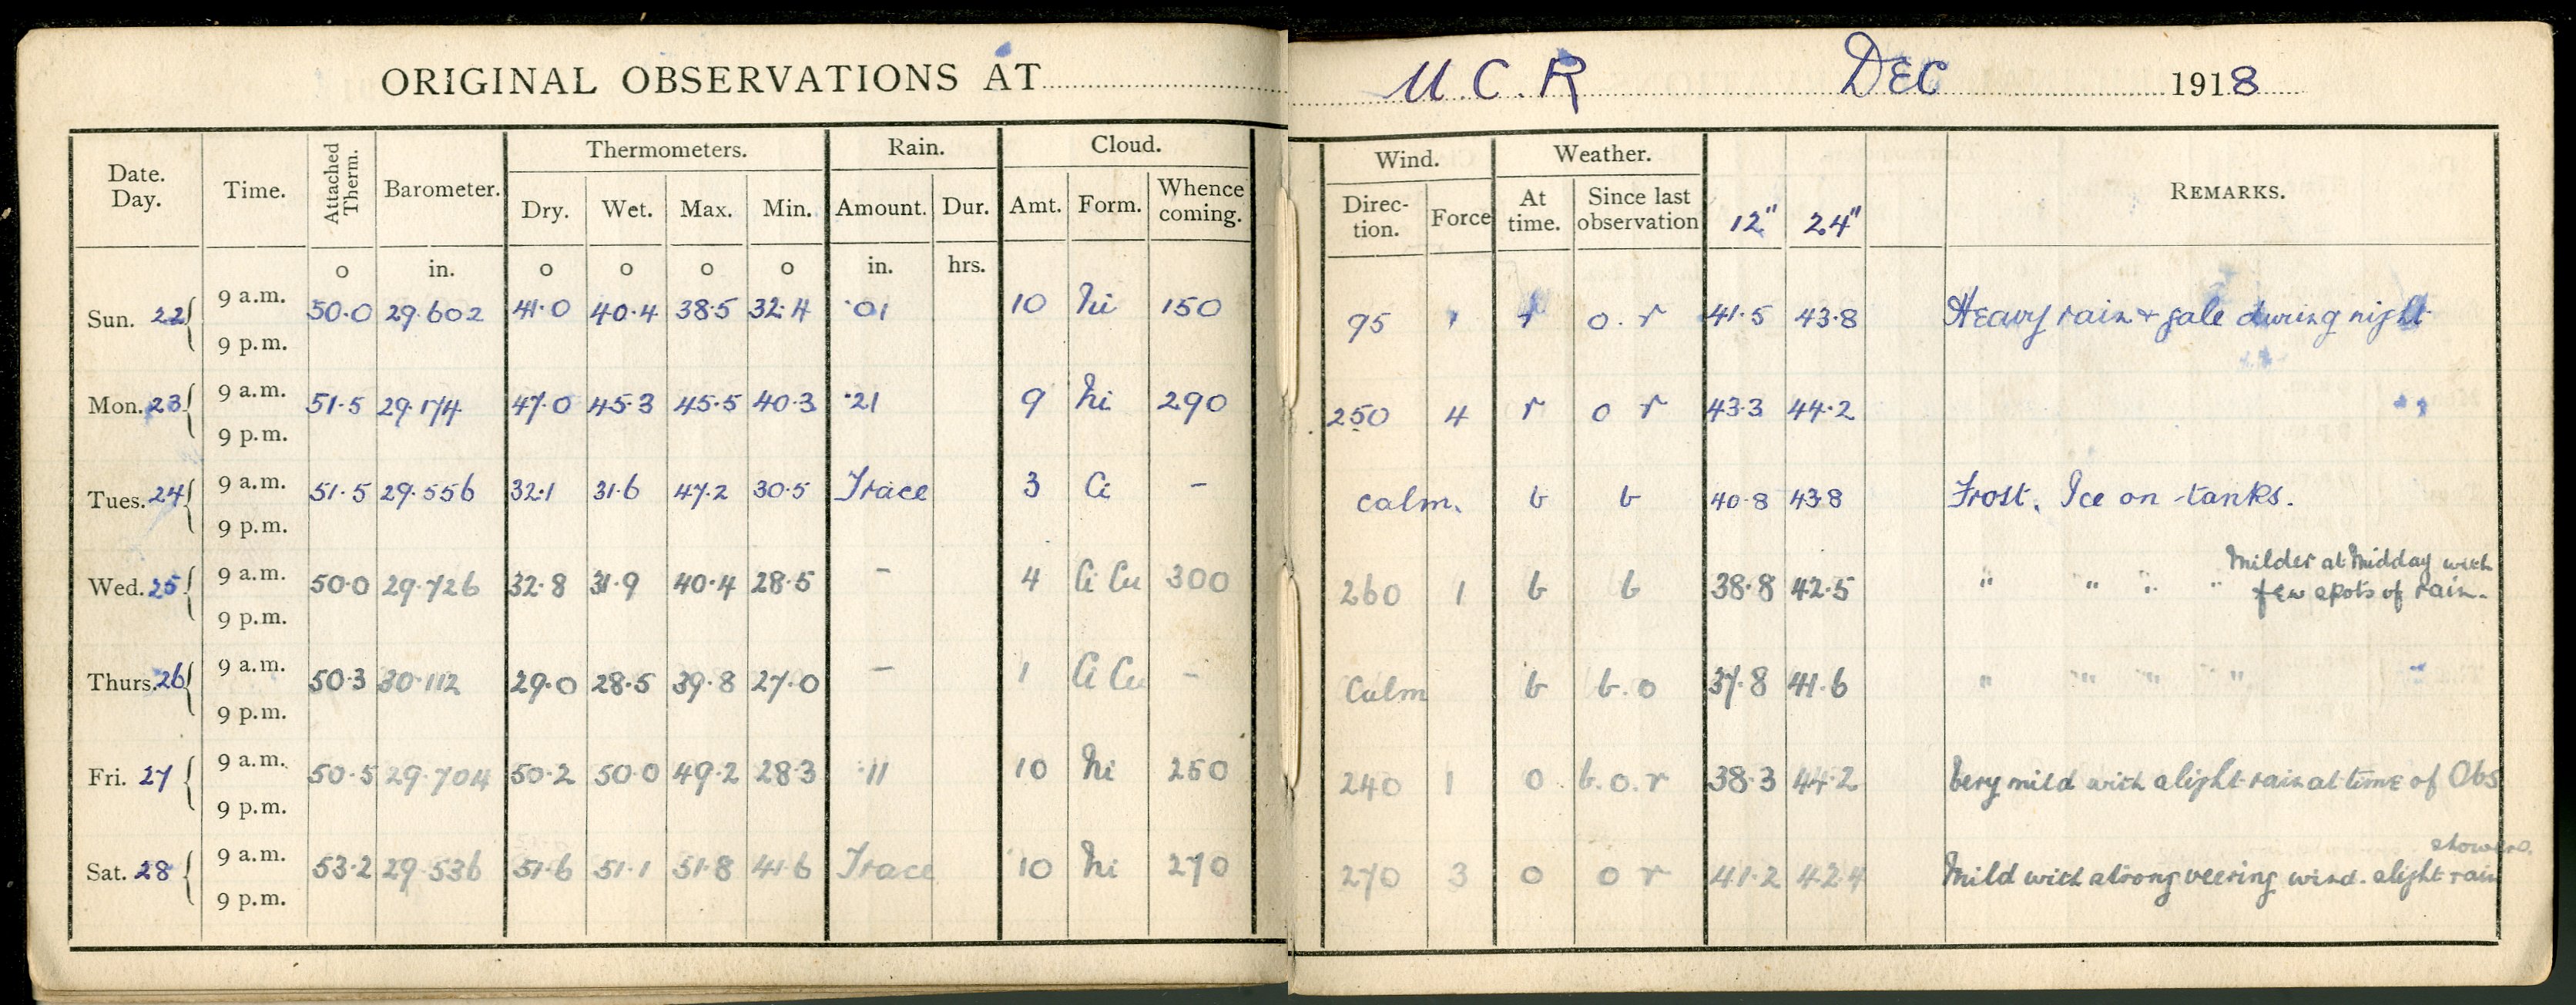 ORIGINAL OBSERVATIONS AT U.C.R DEC 1918
Date. Day. Time. Attached Therm. Barometer. Thermometers. Rain. Cloud. Wind. Weather. REMARKS.
Dry. Wet. Max. Min. Amount. Dur. Amt. Form. Whence coming. Direc-tion. Force At time. Since last observation 12" 24"
o in. o o o o in. hrs.
Sun. 22 9 a.m. 50.0 29.602 41.0 40.4 38.5 32.4 .01 10 Ni 150 95 1 r o.r 41.5 43.8 Heavy rain + gale during night
9 p.m.
Mon. 23 9 a.m. 51.5 29.174 47.0 45.3 45.5 40.3 .21 9 Ni 290 250 4 r o r 43.3 44.2
9 p.m.
Tues. 24 9 a.m. 51.5 29.556 32.1 31.6 47.2 30.5 Trace 3 Ci - calm. b b 40.8 43.8 Frost. Ice on tanks.
9 p.m.
Wed. 25 9 a.m. 50.0 29.726 32.8 31.9 40.4 28.5 - 4 Ci Cu 300 260 1 b b 38.8 42.5 " " " " Milder at Midday with
few spots of rain.
9 p.m.
Thurs. 26 9 a.m. 50.3 30.112 29.0 28.5 39.8 27.0 - 1 Ci Cu - Calm b b.o 37.8 41.6 " " " "
9 p.m.
Fri. 27 9 a.m. 50.5 29.704 50.2 50.0 49.2 28.3 .11 10 Ni 260 240 1 o b.o.r 38.3 44.2 Very mild with slight rain at time of Obs
9 p.m.
Sat. 28 9 a.m. 53.2 29.536 51.6 51.1 51.8 41.6 Trace 10 Ni 270 270 3 o o r 41.2 42.4 Mild with strong veering wind. slight rain
showers.
9 p.m.